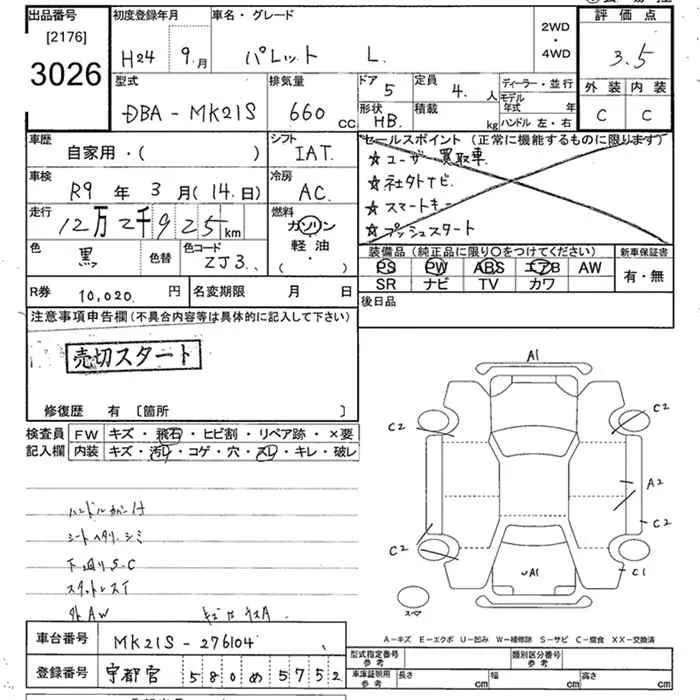 出品番号
[2176]
3026
初度登録年月
H24 9月
車名・グレード
パレット L
2WD
・
4WD
評価点
3.5
外装 内装
C C
型式
DBA-MK21S
排気量
660 cc
ドア 5
形状 HB
定員 4. 人
積載 kg
ディーラー・並行
モデル年式 年
ハンドル 左・右
車歴
自家用・( )
シフト
IAT
セールスポイント(正常に機能するものに限ります)
☆ユーザー買取車
☆社外ナビ
☆スマートキー
☆プッシュスタート
車検
R9年3月(14.日)
冷房
AC
走行
12万2千925km
燃料
ガソリン
軽油
・( )
色
黒
色替
色コード
ZJ3
装備品(純正品に限り○をつけてください)
PS PW ABS エアB AW
SR ナビ TV カワ
新車保証書
有・無
R券 10,020. 円
名変期限 月 日
後日品
注意事項申告欄(不具合内容等は具体的に記入して下さい)
売切スタート
修復歴 有 [箇所 ]
検査員
記入欄
FW キズ・飛石・ヒビ割・リペア跡・×要
内装 キズ・汚レ・コゲ・穴・スレ・キレ・破レ
シートヘタリ.シミ
下廻りS.C
スタットレスイ
外AW
A1
C2
C2
A2
C2
C2
A1
C1
スペア
A-キズ E-エクボ U-凹み W-補修跡 S-サビ C-腐食 XX-交換済
車台番号
MK21S-276104
登録番号
宇都宮 580 め 5752
型式指定番号
参考
類別区分番号
参考
車庫証明用
参考
長さ cm 幅 cm 高さ cm